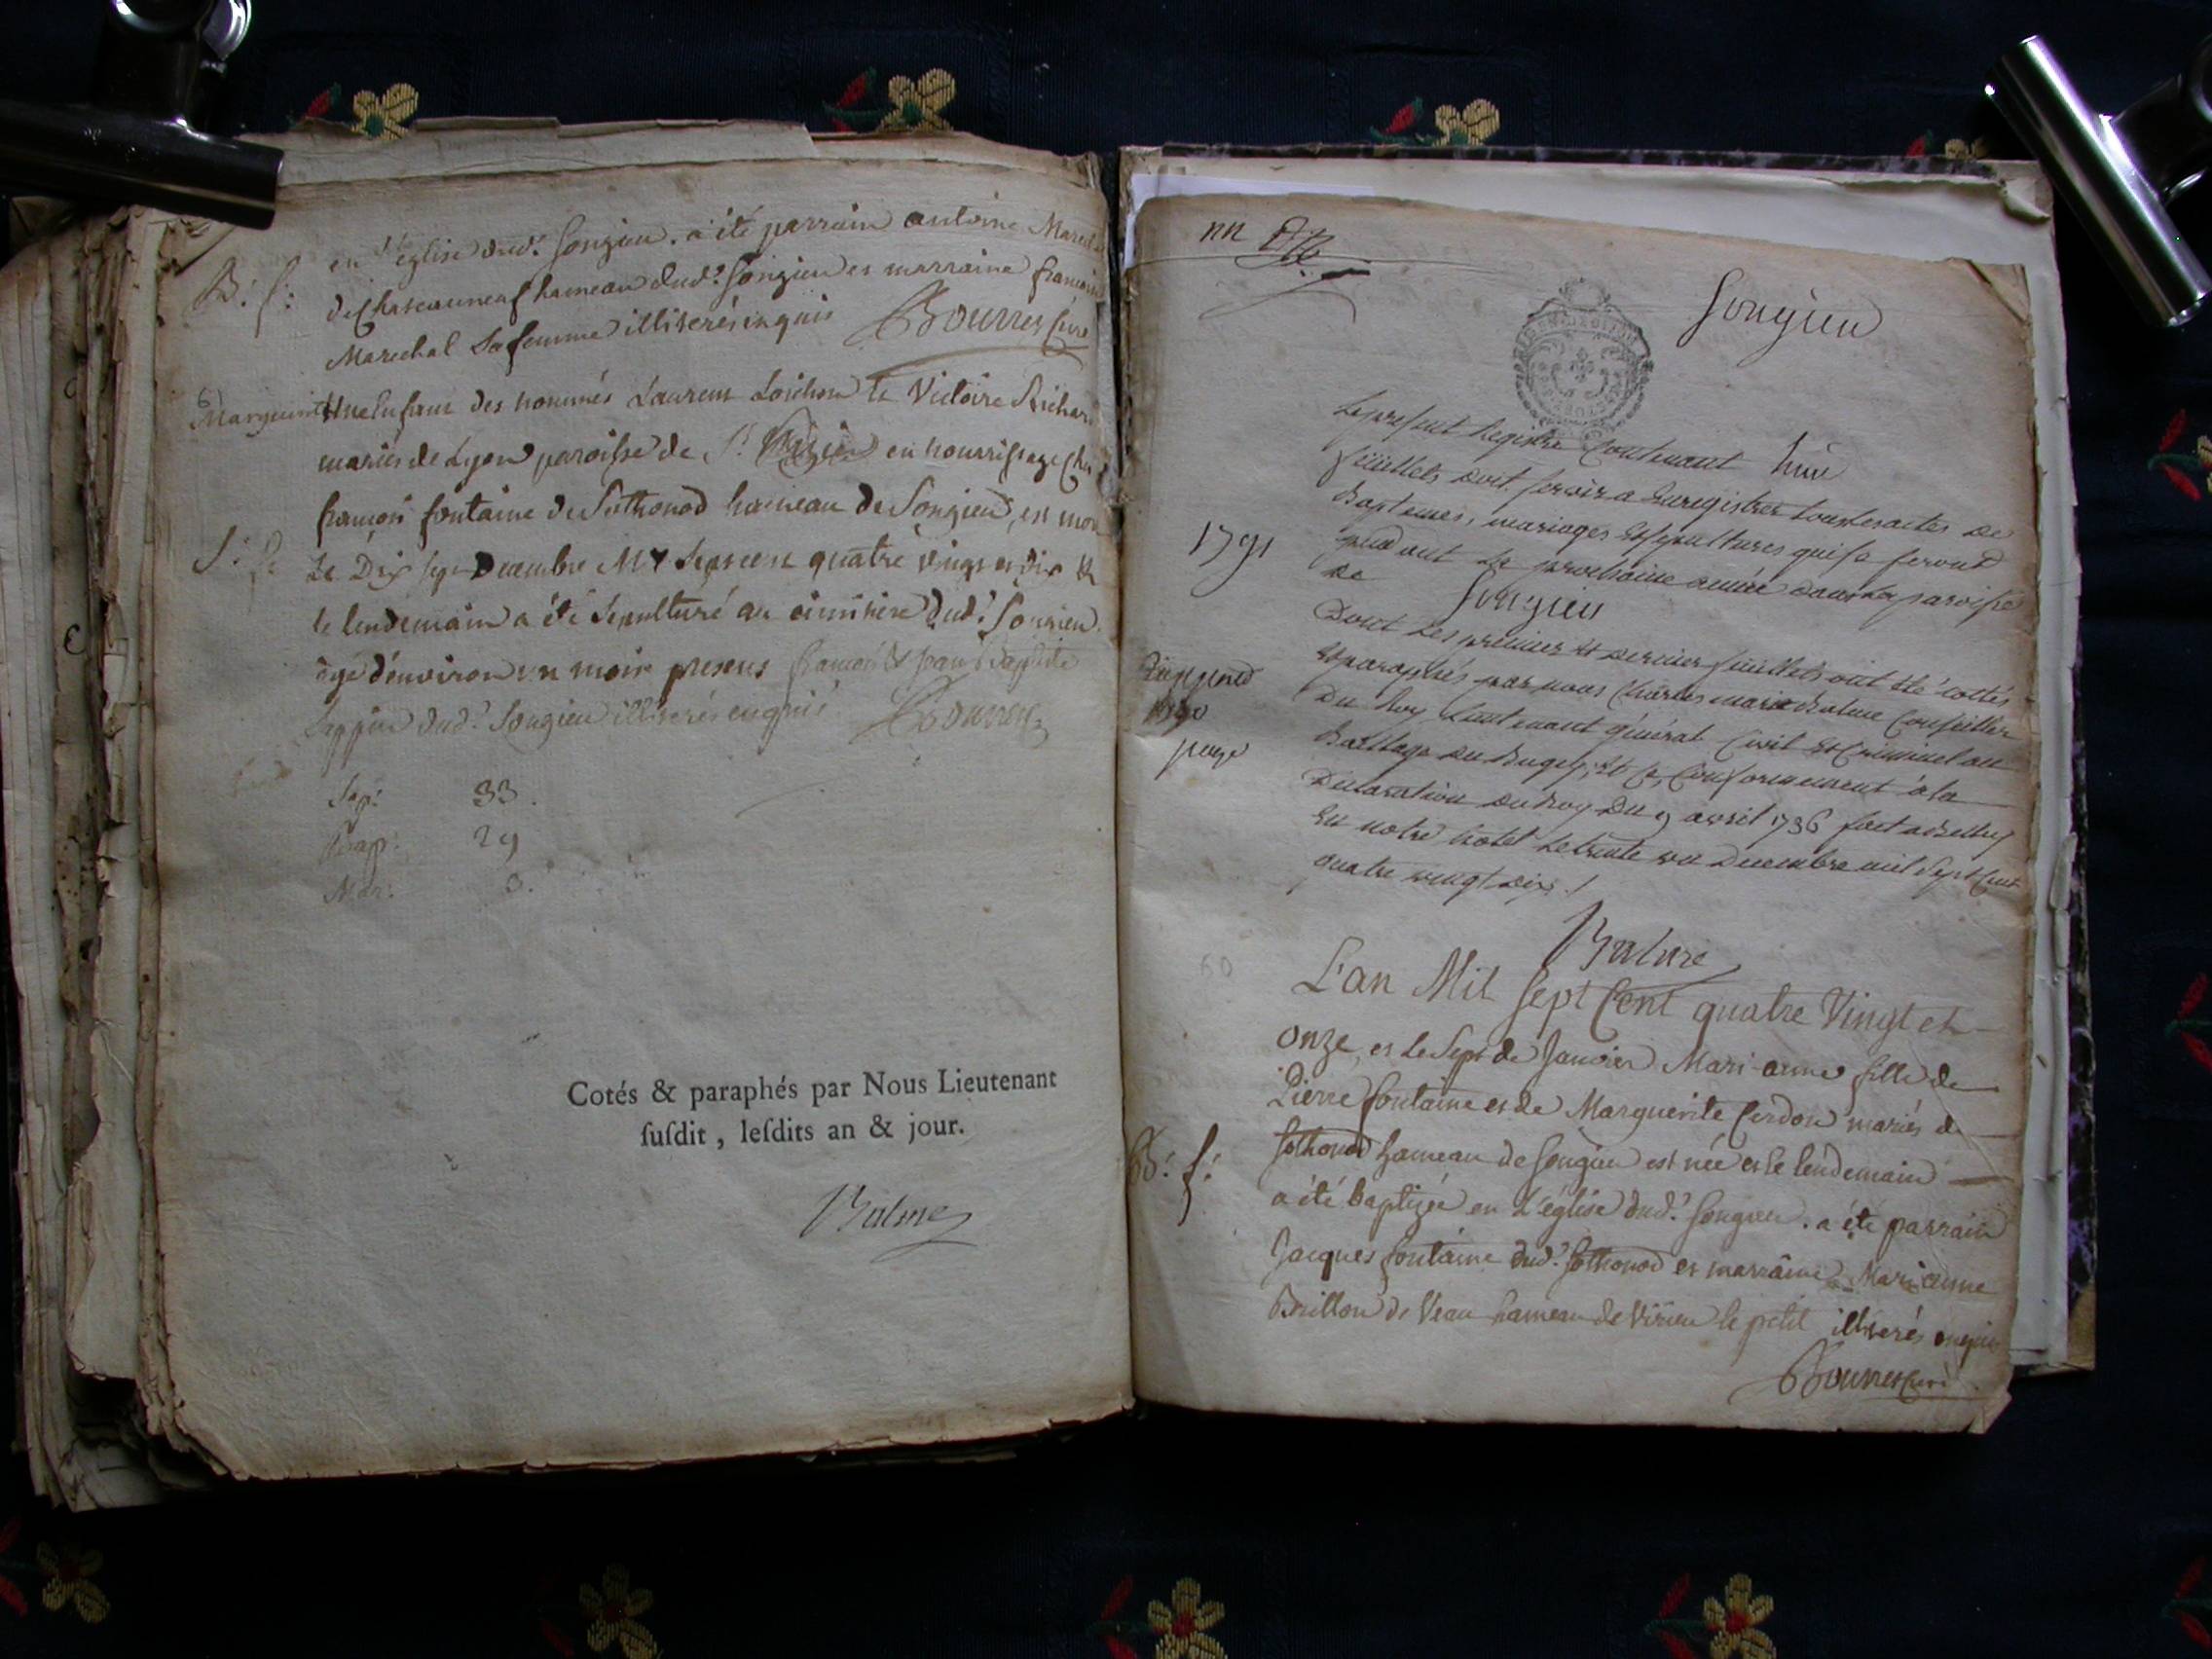 en l'église dud.t Songieu. a été parrain antoine Marechal
B: f: de Chateauneuf hameau dud.t Songieu et marraine francoise
Marechal Sa femme illiterés enquis Bourres Curé
6
Marguerite Une Enfant des nommés Laurent Loichon et Victoire Richard
mariés de Lyon paroisse de S.t en nourrissage chez
francois fontaine de Sothonod hameau de Songieu, est mort
S: f: Le Dix sept Decembre Mil Sept cent quatre vingt et dix &
le lendemain a été Sepulturé au cimitière dud.t Songieu.
agé d'environ un mois presens francois & Jean Baptiste
dud.t Songieu illiterés enquis Bourres
Sep: 33.
Bap: 29
Mar: 3.
Cotés & paraphés par Nous Lieutenant
susdit, lesdits an & jour.
Balme
Songieu
Le present Registre Contenant huit
feuillets doit servir a Enregistrer tous les actes de
Baptemes, mariages et sepultures qui se feront
1791
pendant la prochaine année dans la paroisse
de Songieu
Dont Les premier et dernier feuillets ont été cottés
et paraphés par nous Charles marie Balme Conseiller
Du Roy Lieutenant général Civil et Criminel au
Bailliage du Bugey, et ce, Conformement à la
Declaration du Roy Du 9 avril 1736 fait a Belley
En notre hotel Le trente un Decembre mil Sept Cent
quatre vingt dix !
Balme
60
L'an Mil Sept Cent quatre Vingt et
onze, et le Sept de Janvier Mari-anne fille de
Pierre fontaine et de Marguerite Cerdon mariés de
Sothonod hameau de Songieu est née et le lendemain
B: f:
a été baptizée en L'église dud.t Songieu. a été parrain
Jacques fontaine dud.t Sothonod et marraine Marianne
Brillon de Veau hameau de Virieu le petit illiterés enquis
Bourres Curé